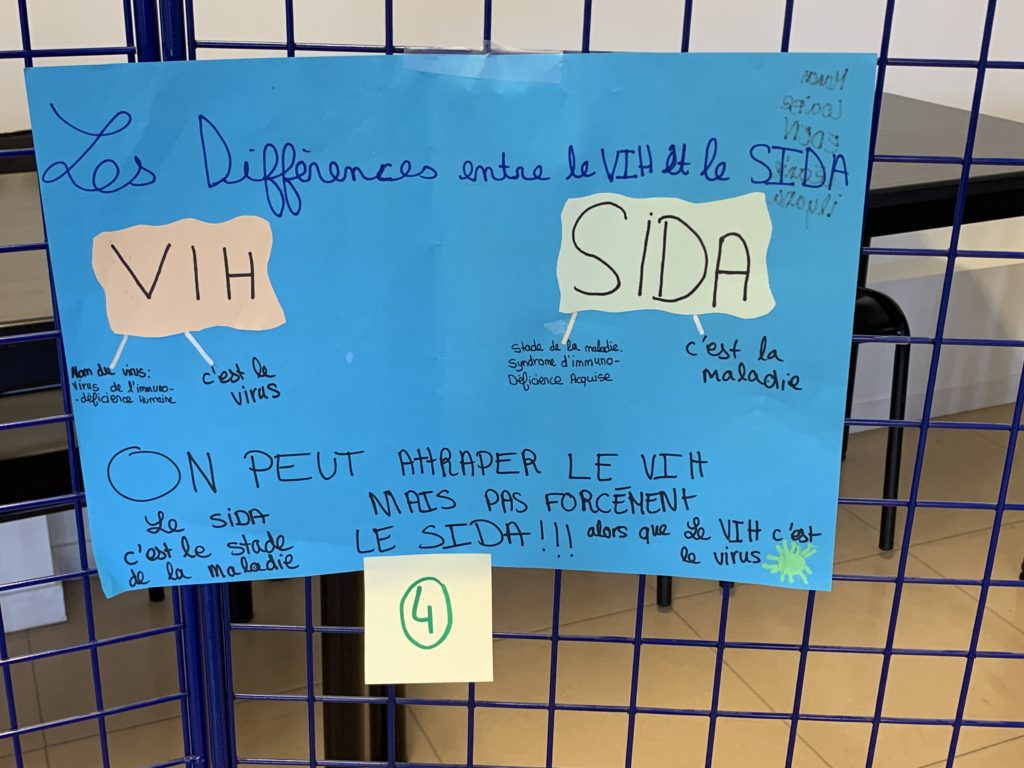 Les Différences entre le VIH et le SIDA
VIH
SiDA
Nom du virus:
Virus de l'immuno-
-déficience Humaine
c'est le
virus
Stade de la maladie.
Syndrome d'immuno-
Déficience Acquise
c'est la
maladie
ON PEUT ATTRAPER LE VIH
MAIS PAS FORCÉMENT
LE SIDA!!!
Le SiDA
c'est le stade
de la maladie
alors que Le VIH c'est
le virus
4